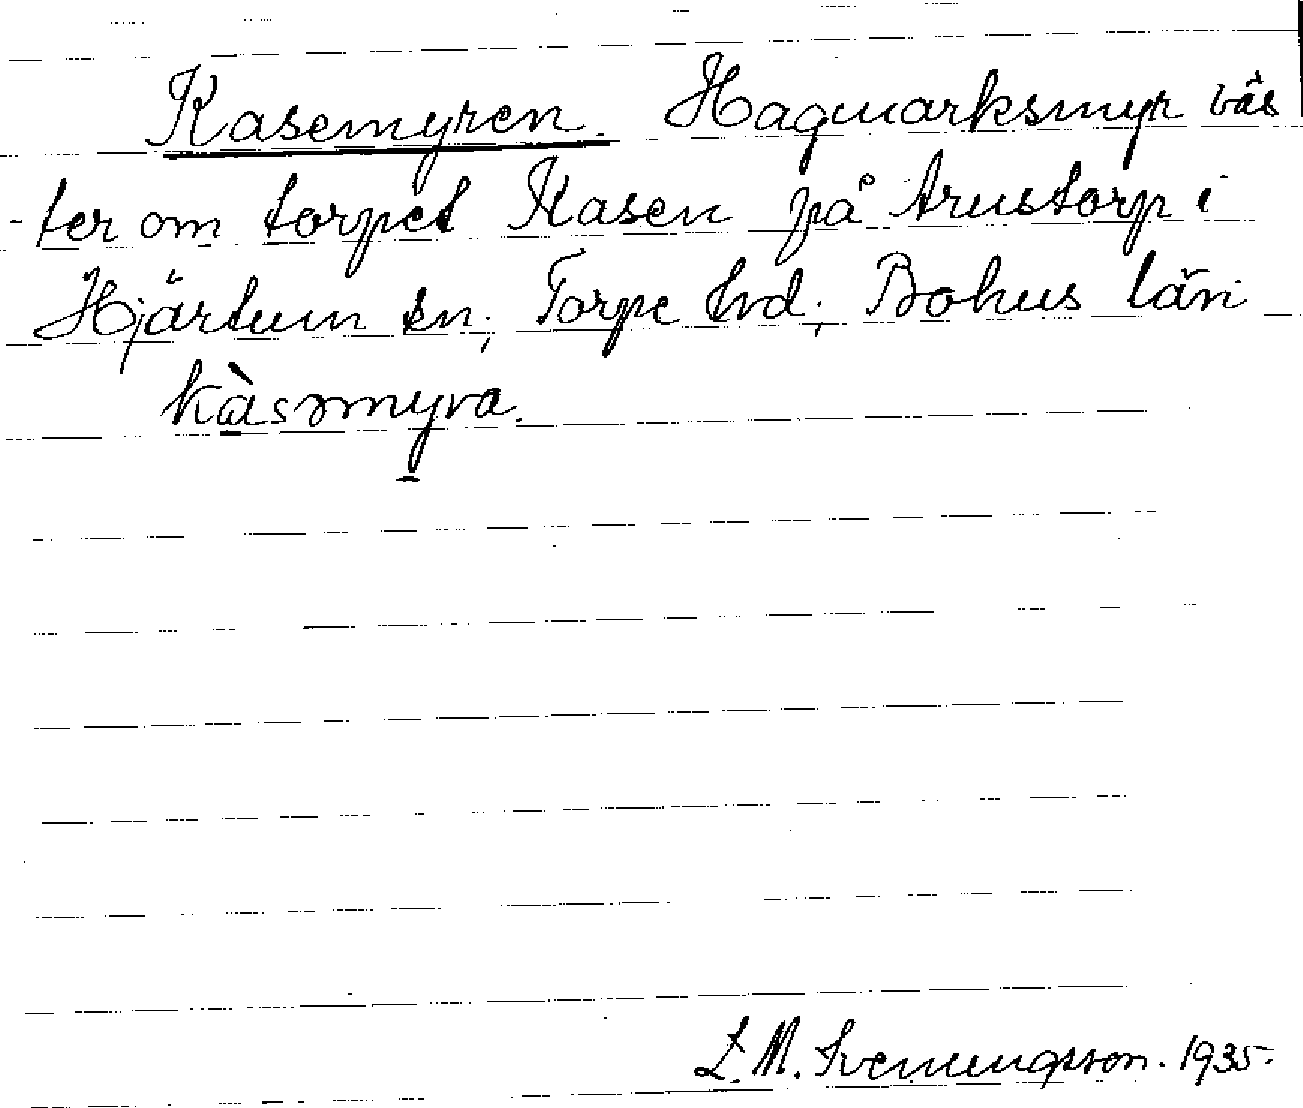 Kasemyren. Hagmarksmyr väs
-ter om torpet Kasen på Arustorp i
Hjärtum sn; Torpe hrd; Bohus län
kàsəmyra.
L. M. Svenungsson. 1935.